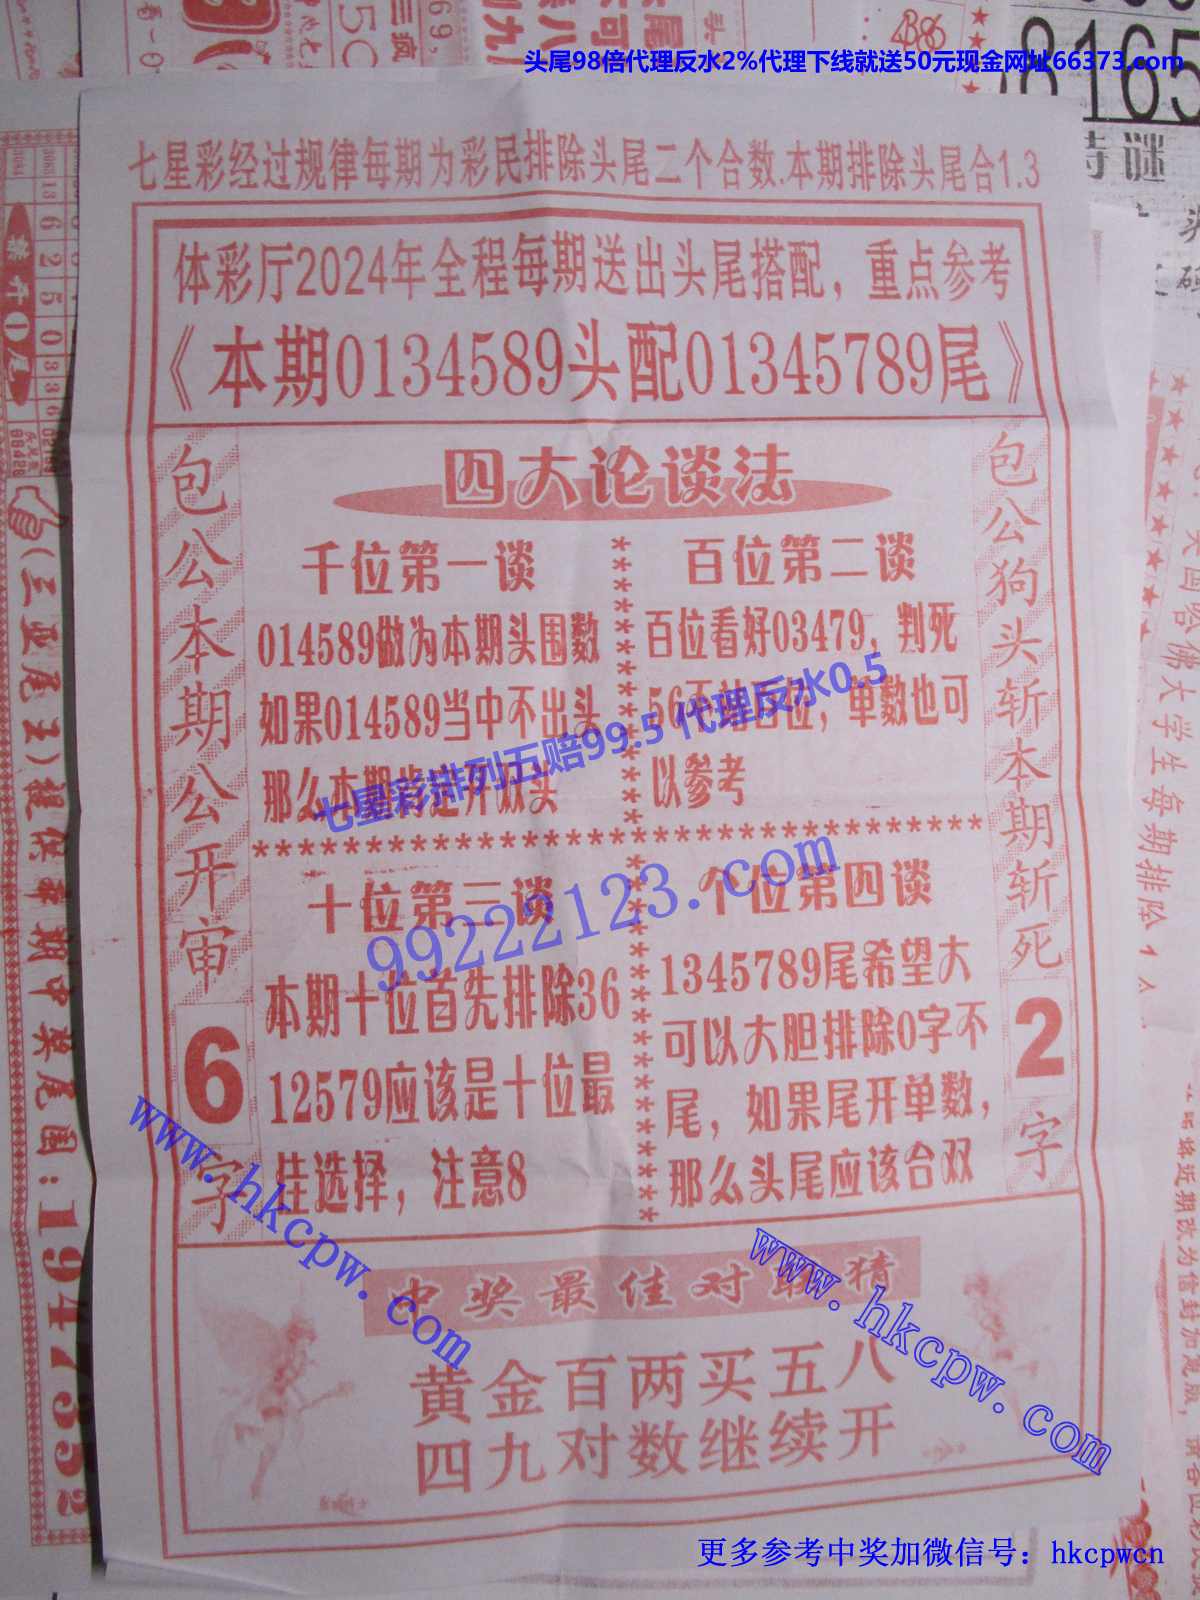 头尾98倍代理反水2%代理下线就送50元现金网址66373.com
8165
七星彩经过规律每期为彩民排除头尾二个合数.本期排除头尾合1.3
体彩厅2024年全程每期送出头尾搭配，重点参考
《本期0134589头配01345789尾》
包公本期公开审6字
四大论谈法
千位第一谈
014589做为本期头围数
如果014589当中不出头
那么本期肯定开双头
百位第二谈
百位看好03479，判死
56不佔百位，单数也可
以参考
七星彩排列五赔99.5 代理反水0.5
99222123.com
十位第三谈
本期十位首先排除36
12579应该是十位最
佳选择，注意8
个位第四谈
1345789尾希望大
可以大胆排除0字不
尾，如果尾开单数，
那么头尾应该合双
包公狗头斩本期斩死2字
中奖最佳对联猜
黄金百两买五八
四九对数继续开
www.hkcpw.com
www.hkcpw.com
(三亚尾王)提供每期中奖尾围:1947352
更多参考中奖加微信号：hkcpwcn